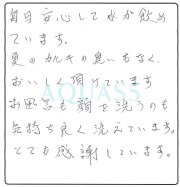 毎日安心して水が飲め
ています。
夏のカルキの臭いもなく、
おいしく頂けています
お風呂も顔を洗うのも
気持ち良く洗えています。
とても感謝しています。
AQUASS